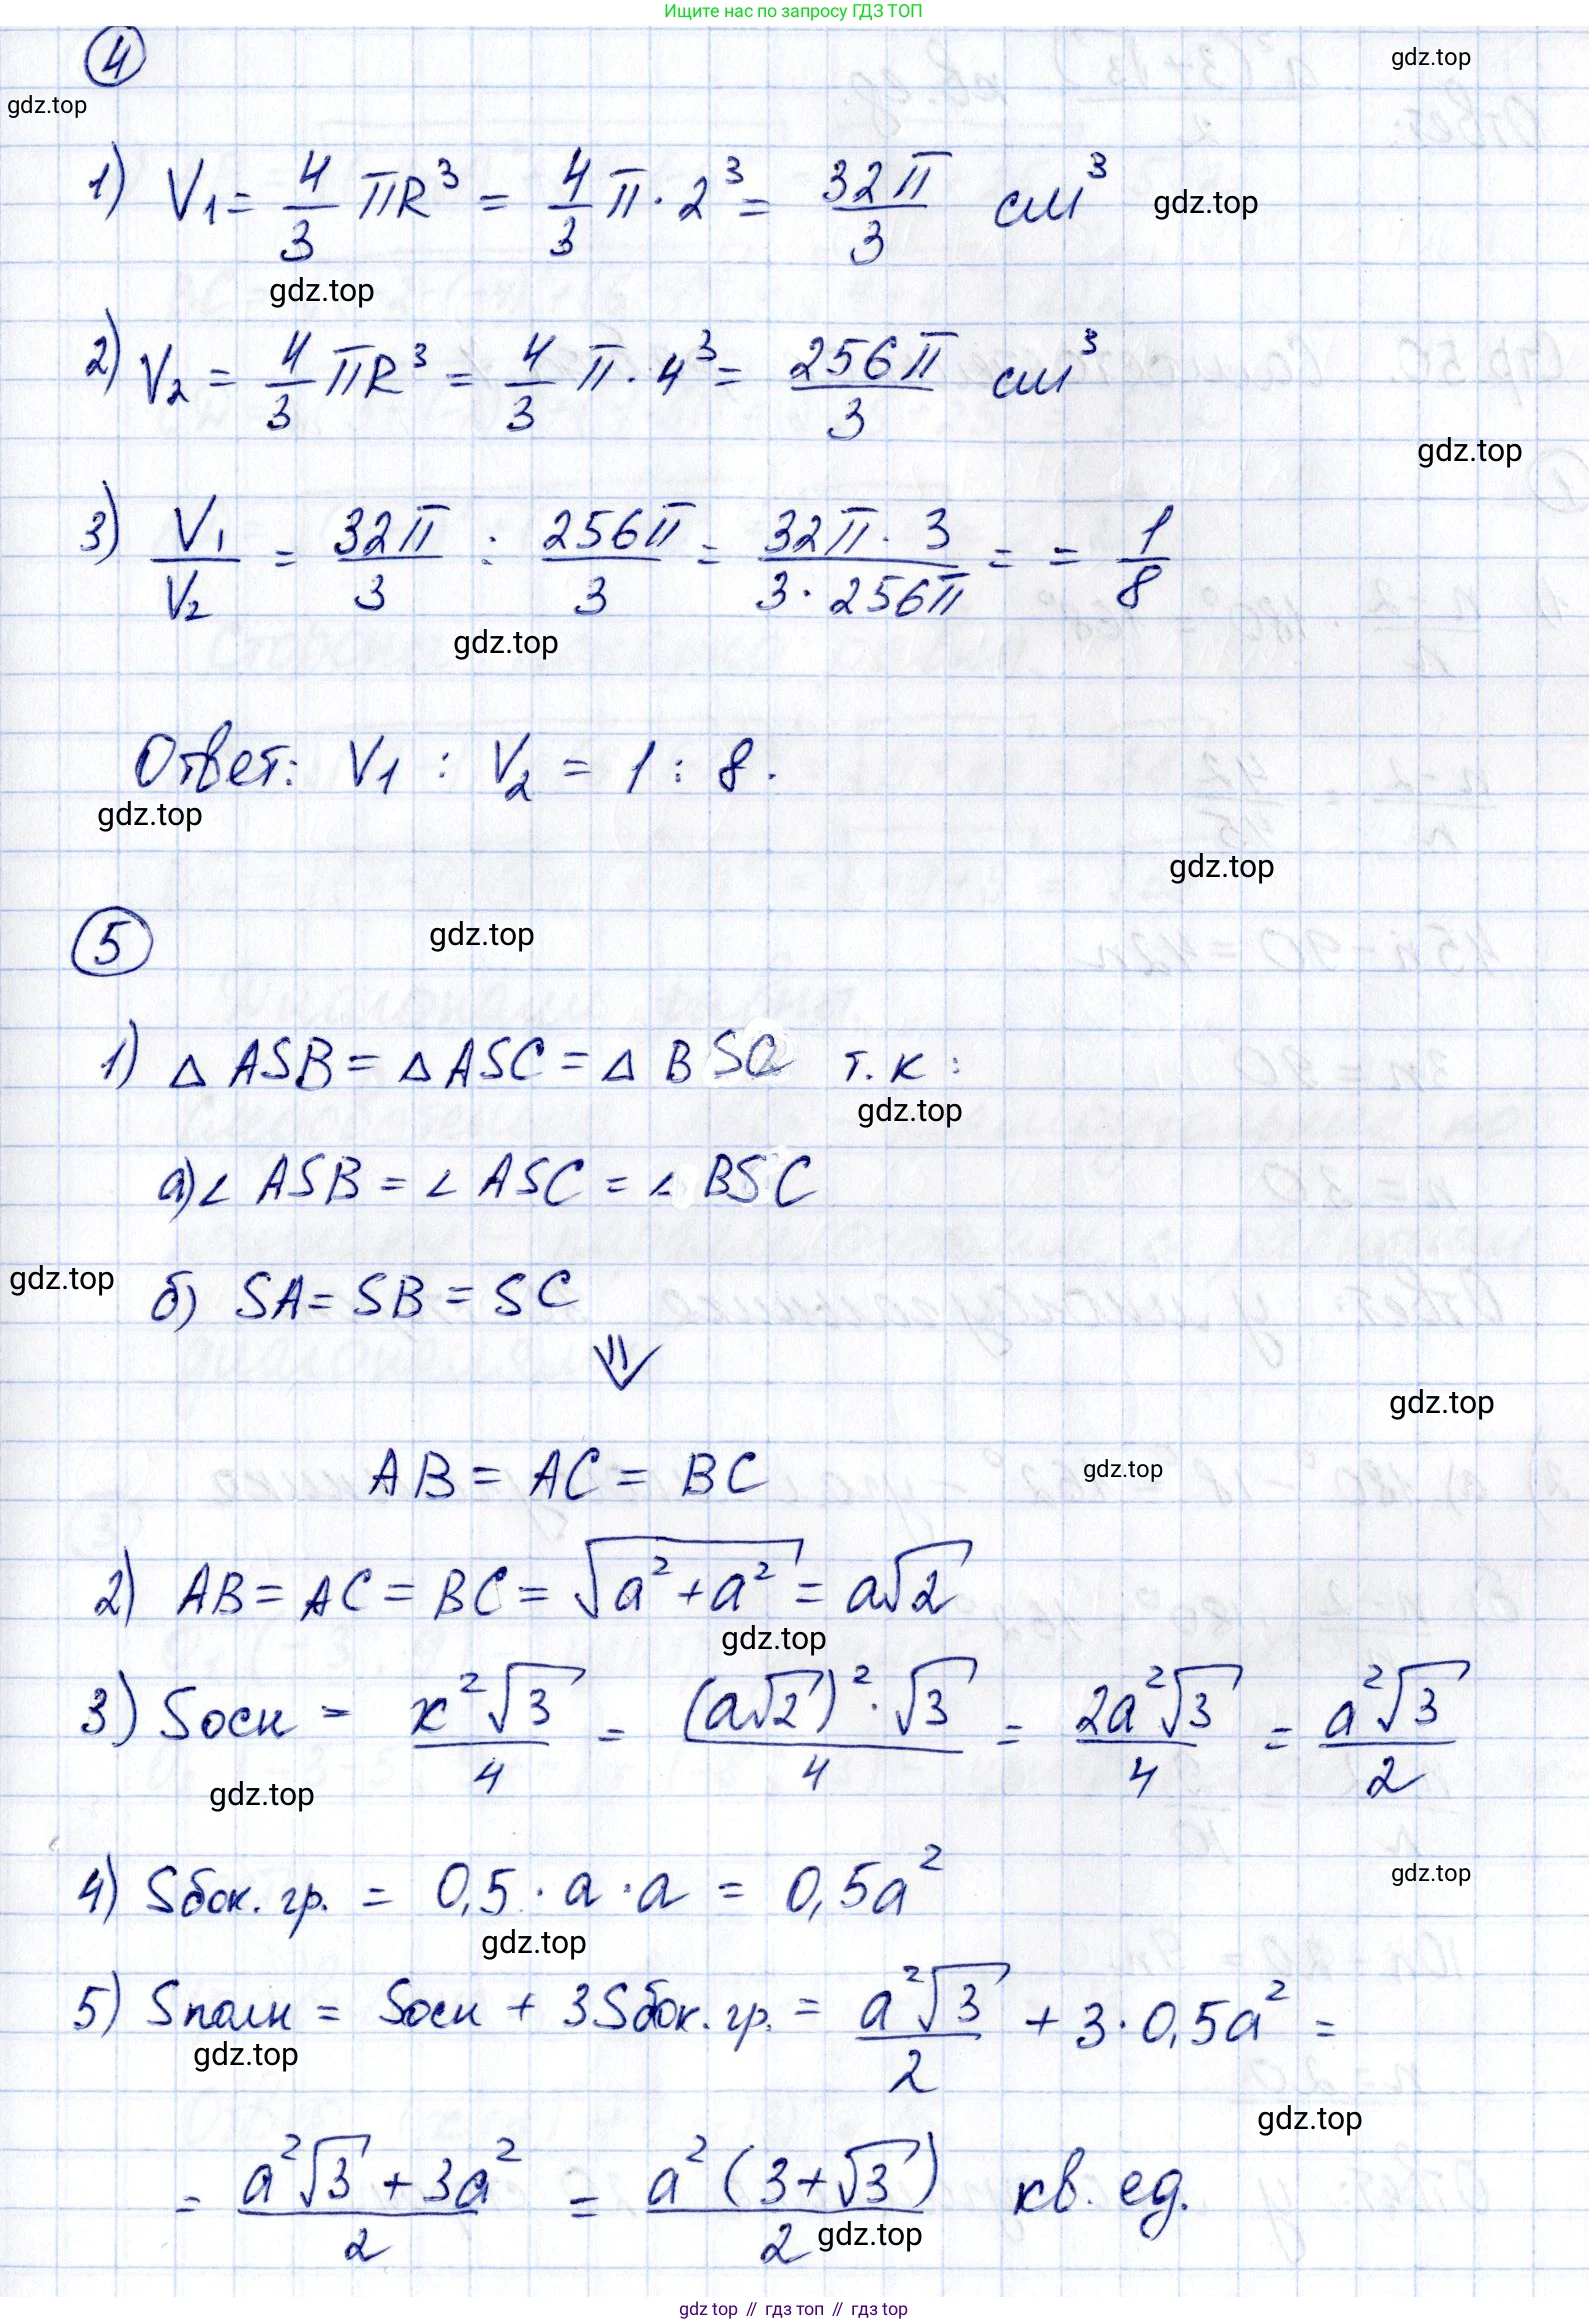 Ищите нас по запросу ГДЗ ТОП
4
gdz.top
gdz.top
1) V₁ = 4/3 πR³ = 4/3 π · 2³ = 32π/3 см³
gdz.top
gdz.top
2) V₂ = 4/3 πR³ = 4/3 π · 4³ = 256π/3 см³
gdz.top
3) V₁/V₂ = 32π/3 : 256π/3 = 32π · 3/3 · 256π = = 1/8
gdz.top
Ответ: V₁ : V₂ = 1 : 8.
gdz.top
gdz.top
5
gdz.top
1) △ ASB = △ ASC = △ BSC т.к:
gdz.top
а) ∠ ASB = ∠ ASC = ∠ BSC
gdz.top
б) SA = SB = SC
⇓
gdz.top
AB = AC = BC
gdz.top
2) AB = AC = BC = √(a² + a²) = a√2
gdz.top
3) Sосн = x²√3/4 = (a√2)² · √3/4 = 2a²√3/4 = a²√3/2
gdz.top
4) Sбок. гр. = 0,5 · a · a = 0,5a²
gdz.top
gdz.top
5) Sполн = Sосн + 3Sбок. гр. = a²√3/2 + 3 · 0,5a² =
gdz.top
gdz.top
= a²√3 + 3a²/2 = a² (3 + √3)/2 кв. ед.
gdz.top
gdz top // гдз топ // гдз top